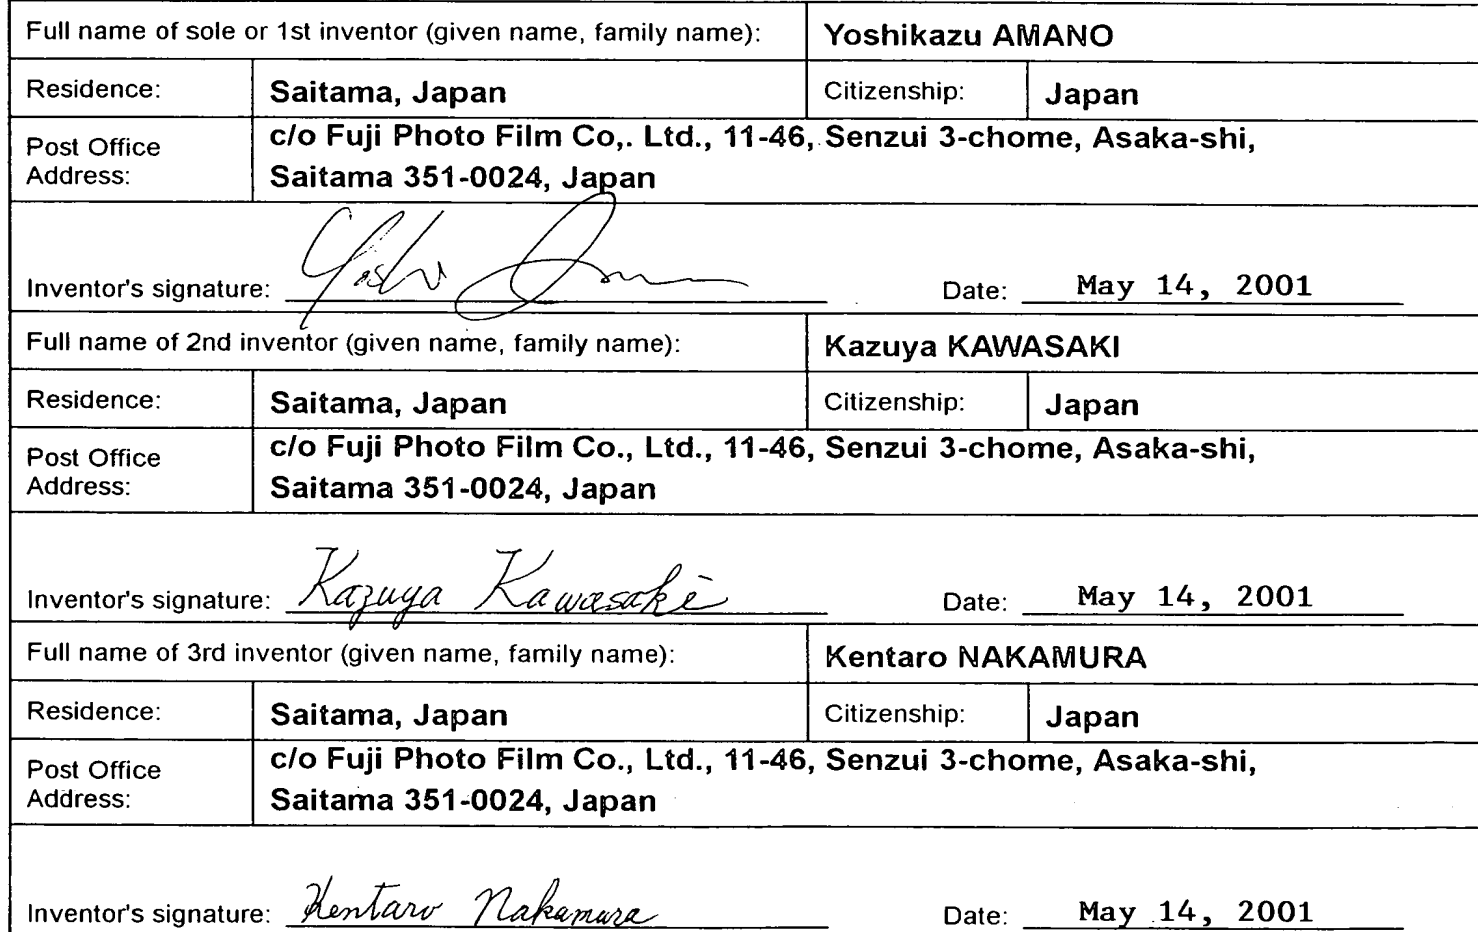 Full name of sole or 1st inventor (given name, family name): Yoshikazu AMANO
Residence: Saitama, Japan Citizenship: Japan
Post Office Address: c/o Fuji Photo Film Co,. Ltd., 11-46, Senzui 3-chome, Asaka-shi,
Saitama 351-0024, Japan
Inventor's signature: Yoshi Date: May 14, 2001
Full name of 2nd inventor (given name, family name): Kazuya KAWASAKI
Residence: Saitama, Japan Citizenship: Japan
Post Office Address: c/o Fuji Photo Film Co., Ltd., 11-46, Senzui 3-chome, Asaka-shi,
Saitama 351-0024, Japan
Inventor's signature: Kazuya Kawasaki Date: May 14, 2001
Full name of 3rd inventor (given name, family name): Kentaro NAKAMURA
Residence: Saitama, Japan Citizenship: Japan
Post Office Address: c/o Fuji Photo Film Co., Ltd., 11-46, Senzui 3-chome, Asaka-shi,
Saitama 351-0024, Japan
Inventor's signature: Kentaro Nakamura Date: May 14, 2001